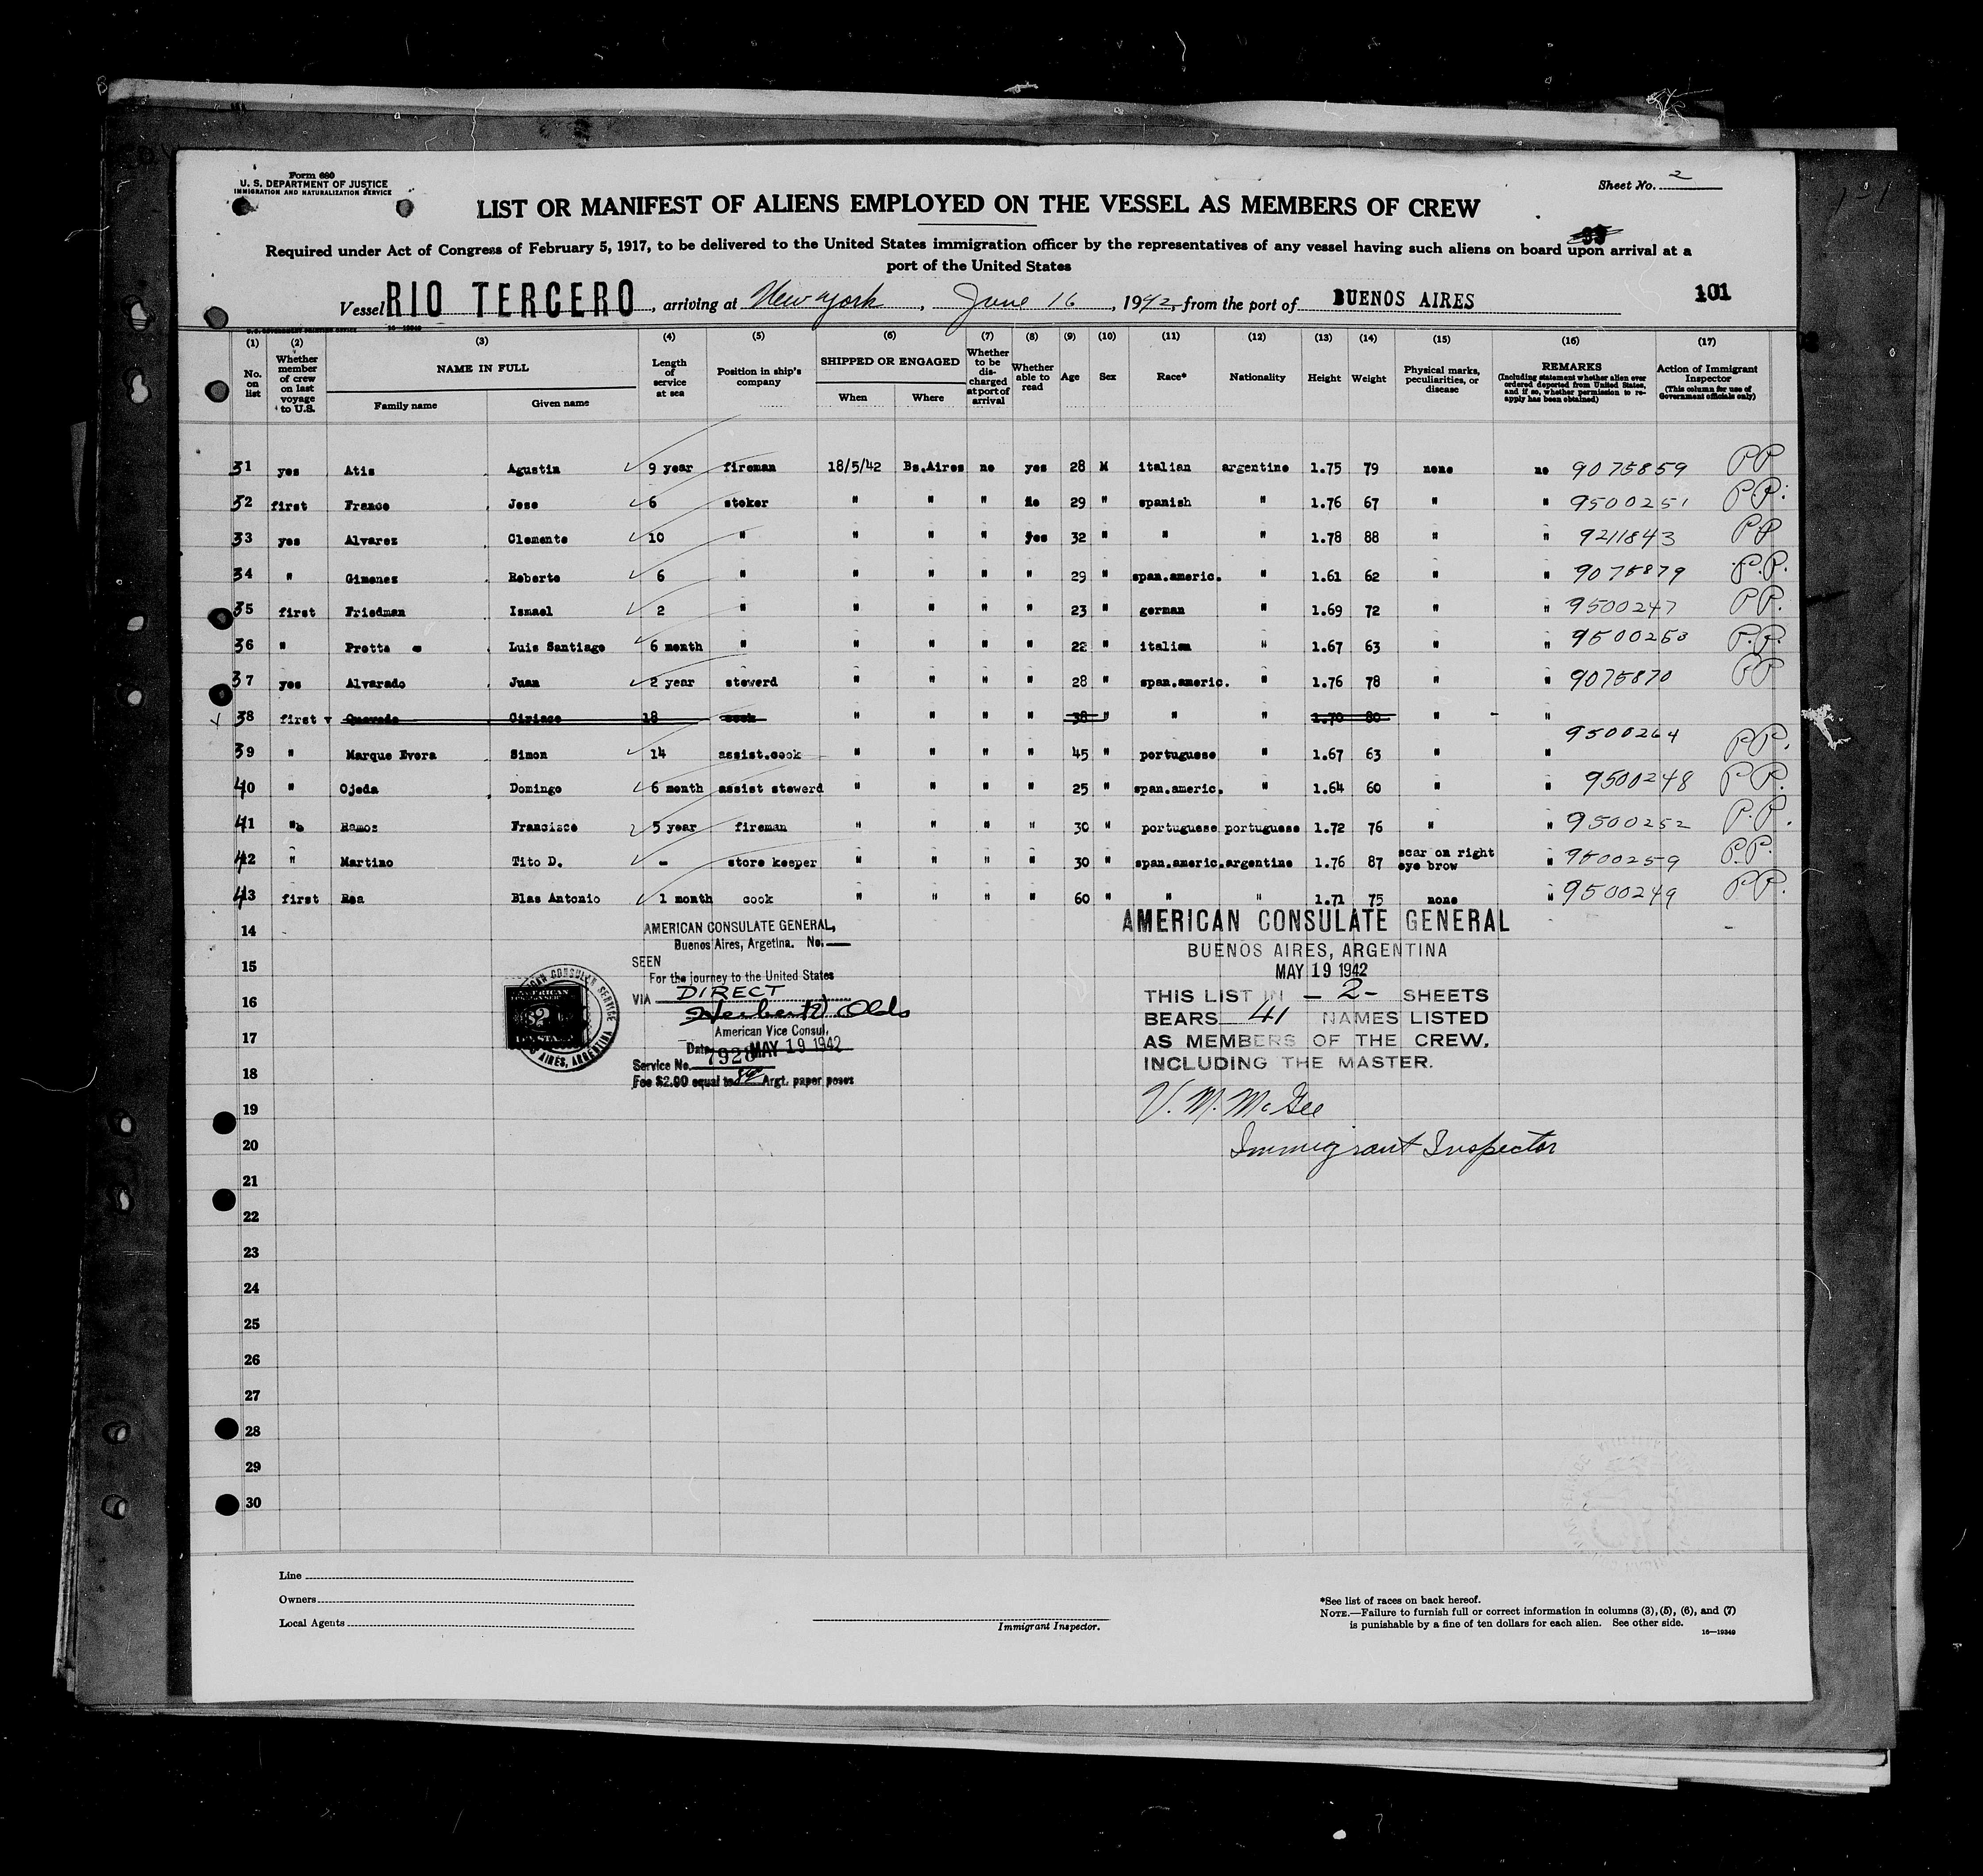 Form 680
U. S. DEPARTMENT OF JUSTICE
IMMIGRATION AND NATURALIZATION SERVICE
Sheet No. 2
LIST OR MANIFEST OF ALIENS EMPLOYED ON THE VESSEL AS MEMBERS OF CREW
Required under Act of Congress of February 5, 1917, to be delivered to the United States immigration officer by the representatives of any vessel having such aliens on board upon arrival at a
port of the United States
Vessel RIO TERCERO, arriving at New York, June 16, 1942, from the port of BUENOS AIRES
101
(1) (2) (3) (4) (5) (6) (7) (8) (9) (10) (11) (12) (13) (14) (15) (16) (17)
No. on list
Whether member of crew on last voyage to U.S.
NAME IN FULL
Family name Given name
Length of service at sea
Position in ship's company
SHIPPED OR ENGAGED
When Where
Whether to be discharged at port of arrival
Whether able to read
Age Sex Race* Nationality Height Weight
Physical marks, peculiarities, or disease
REMARKS
(Including statement whether alien ever ordered deported from United States, and if so, whether permission to reapply has been obtained)
Action of Immigrant Inspector
(This column for use of Government officials only)
31 yes Atis Agustin 9 year fireman 18/5/42 Bs.Aires no yes 28 M italian argentine 1.75 79 none no 9075859 PP
32 first Franco Jose 6 stoker " " " no 29 " spanish " 1.76 67 " " 9500251 PP.
33 yes Alvarez Clemente 10 " " " " yes 32 " " " 1.78 88 " " 9211843 PP
34 " Gimenez Roberto 6 " " " " " 29 " span.americ. " 1.61 62 " " 9075879 P.P.
35 first Friedman Ismael 2 " " " " " 23 " german " 1.69 72 " " 9500247 PP.
36 " Protto Luis Santiago 6 month " " " " " 22 " italian " 1.67 63 " " 9500250 P.P.
37 yes Alvarado Juan 2 year stewerd " " " " 28 " span.americ. " 1.76 78 " " 9075870 PP
38 first Quevedo Ciriaco 18 cook " " " " 38 " " " 1.70 80 " "
39 " Marque Evora Simon 14 assist.cook " " " " 45 " portuguese " 1.67 63 " " 9500264 PP.
40 " Ojeda Domingo 6 month assist stewerd " " " " 25 " span.americ. " 1.64 60 " " 9500248 PP.
41 " Ramos Francisco 5 year fireman " " " " 30 " portuguese portuguese 1.72 76 " " 9500252 P.P.
42 " Martino Tito D. - store keeper " " " " 30 " span.americ. argentine 1.76 87 scar on right eye brow " 9500259 P.P.
43 first Rea Blas Antonio 1 month cook " " " " 60 " " " 1.71 75 none " 9500249 PP.
14
15
16
17
18
19
20
21
22
23
24
25
26
27
28
29
30
AMERICAN CONSULATE GENERAL,
Buenos Aires, Argetina. No.
SEEN
For the journey to the United States
VIA DIRECT
Olds
American Vice Consul,
Date MAY 19 1942
Service No. 7928
Fee $2.00 equal to Argt. paper pesos
AMERICAN CONSULATE GENERAL
BUENOS AIRES, ARGENTINA
MAY 19 1942
THIS LIST IN - 2 - SHEETS
BEARS 41 NAMES LISTED
AS MEMBERS OF THE CREW,
INCLUDING THE MASTER.
V. M. McGee
Immigrant Inspector
Line
Owners
Local Agents
Immigrant Inspector.
*See list of races on back hereof.
NOTE.—Failure to furnish full or correct information in columns (3), (5), (6), and (7)
is punishable by a fine of ten dollars for each alien. See other side.
16—19349